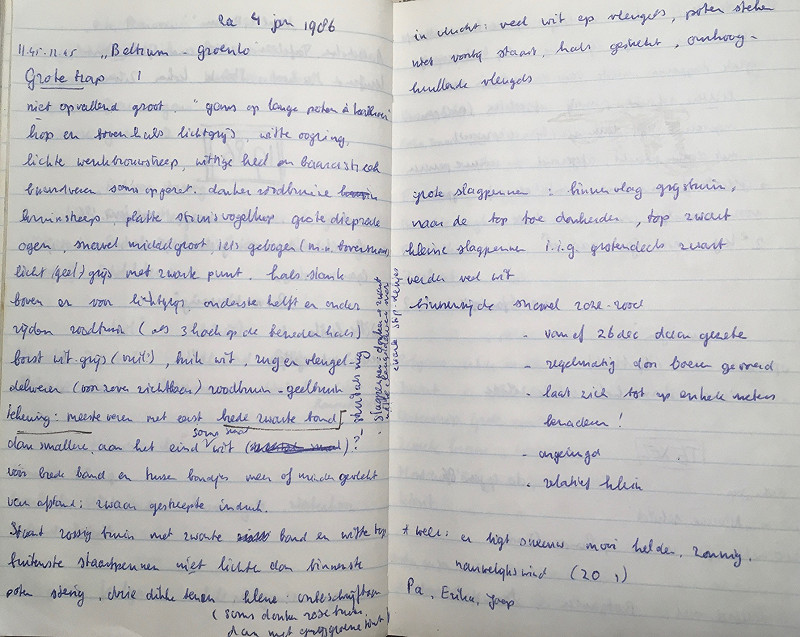 za 4 jan 1986
11.45-12.45 "Beltrum - Groenlo
Grote trap 1
niet opvallend groot. "gans op lange poten à
kop en bovenhals lichtgrijs witte oogring,
lichte wenkbrauwstreep, wittige keel en baardstreek
baardveren soms opgezet. donker roodbruine
kruinstreep, platte struisvogelkop grote dieprode
ogen, snavel middelgroot, iets gebogen (m.n. bovensnavel)
licht (geel) grijs met zwarte punt. hals slank
boven en voor lichtgrijs onderste helft en onder
zijden roodbruin (als 3hoek op de beneden hals)
borst wit-grijs (vuil), buik wit, rug en vleugel-
dekveren (voor zover zichtbaar) roodbruin - geelbruin
tekening: meeste veren met eerst brede zwarte band
dan smallere, aan het eind soms wit ?!
vóór brede band en tussen bandjes meer of minder gevlekt
van afstand: zwaar gestreepte indruk.
Staart rossig bruin met zwarte band en witte top
buitenste staartpennen niet lichter dan binnenste
poten stevig, drie dikke tenen, kleur: onbeschrijfbaar
(soms donker rozebruin,
dan met grijsgroene tint)
slagpennen: donker + zwart
zwarte stip-
in vlucht: veel wit op vleugels, poten steken
niet voorbij staart, hals gestrekt, omhoog-
krullende vleugels
grote slagpennen: binnenvlag grijsbruin,
naar de top toe donkerder, top zwart
kleine slagpennen i.i.g. grotendeels zwart
verder veel wit
binnenzijde snavel roze-rood
- vanaf 26 dec daar gezeten
- regelmatig door boeren gevoerd
- laat zich tot op enkele meters
benaderen!
- ongeringd
- relatief klein
+ weer: er ligt sneeuw mooi helder, zonnig,
nauwelijks wind (ZO 1)
Pa, Erika, Jaap